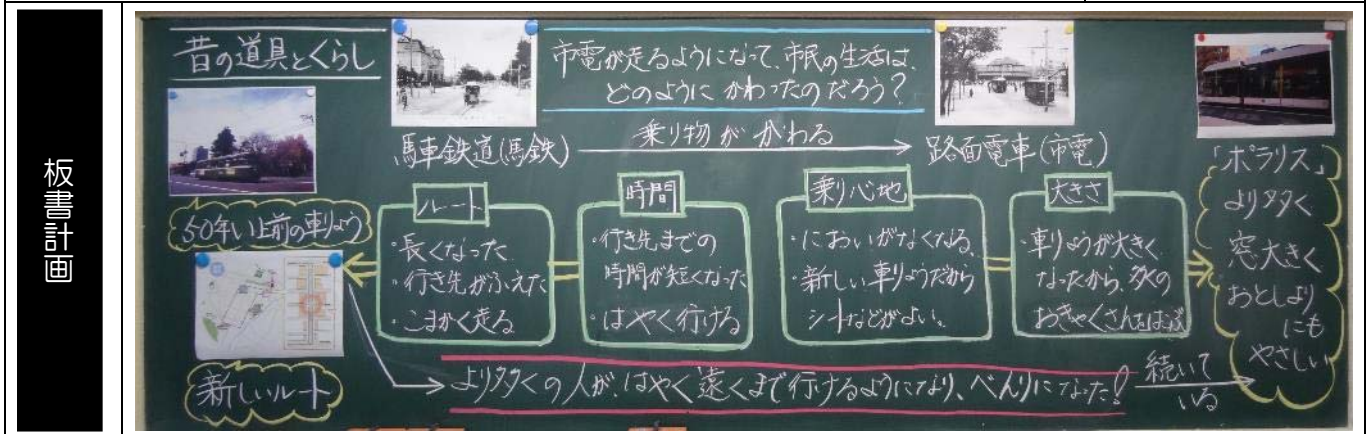 板書計画
昔の道具とくらし
市電が走るようになって、市民の生活は、
どのようにかわったのだろう？
馬車鉄道(馬鉄)
乗り物がかわる
路面電車(市電)
50年以上前の車りょう
新しいルート
ルート
・長くなった
・行き先がふえた
・こまかく走る
時間
・行き先までの
時間が短くなった
・はやく行ける
乗り心地
・においがなくなる。
・新しい車りょうだから
シートなどがよい。
大きさ
・車りょうが大きく
なったから、多くの
おきゃくさんをはこぶ
「ポラリス」
より多く
窓大きく
おとしより
にも
やさしい
より多くの人が、はやく遠くまで行けるようになり、べんりになった！
続いて
いる